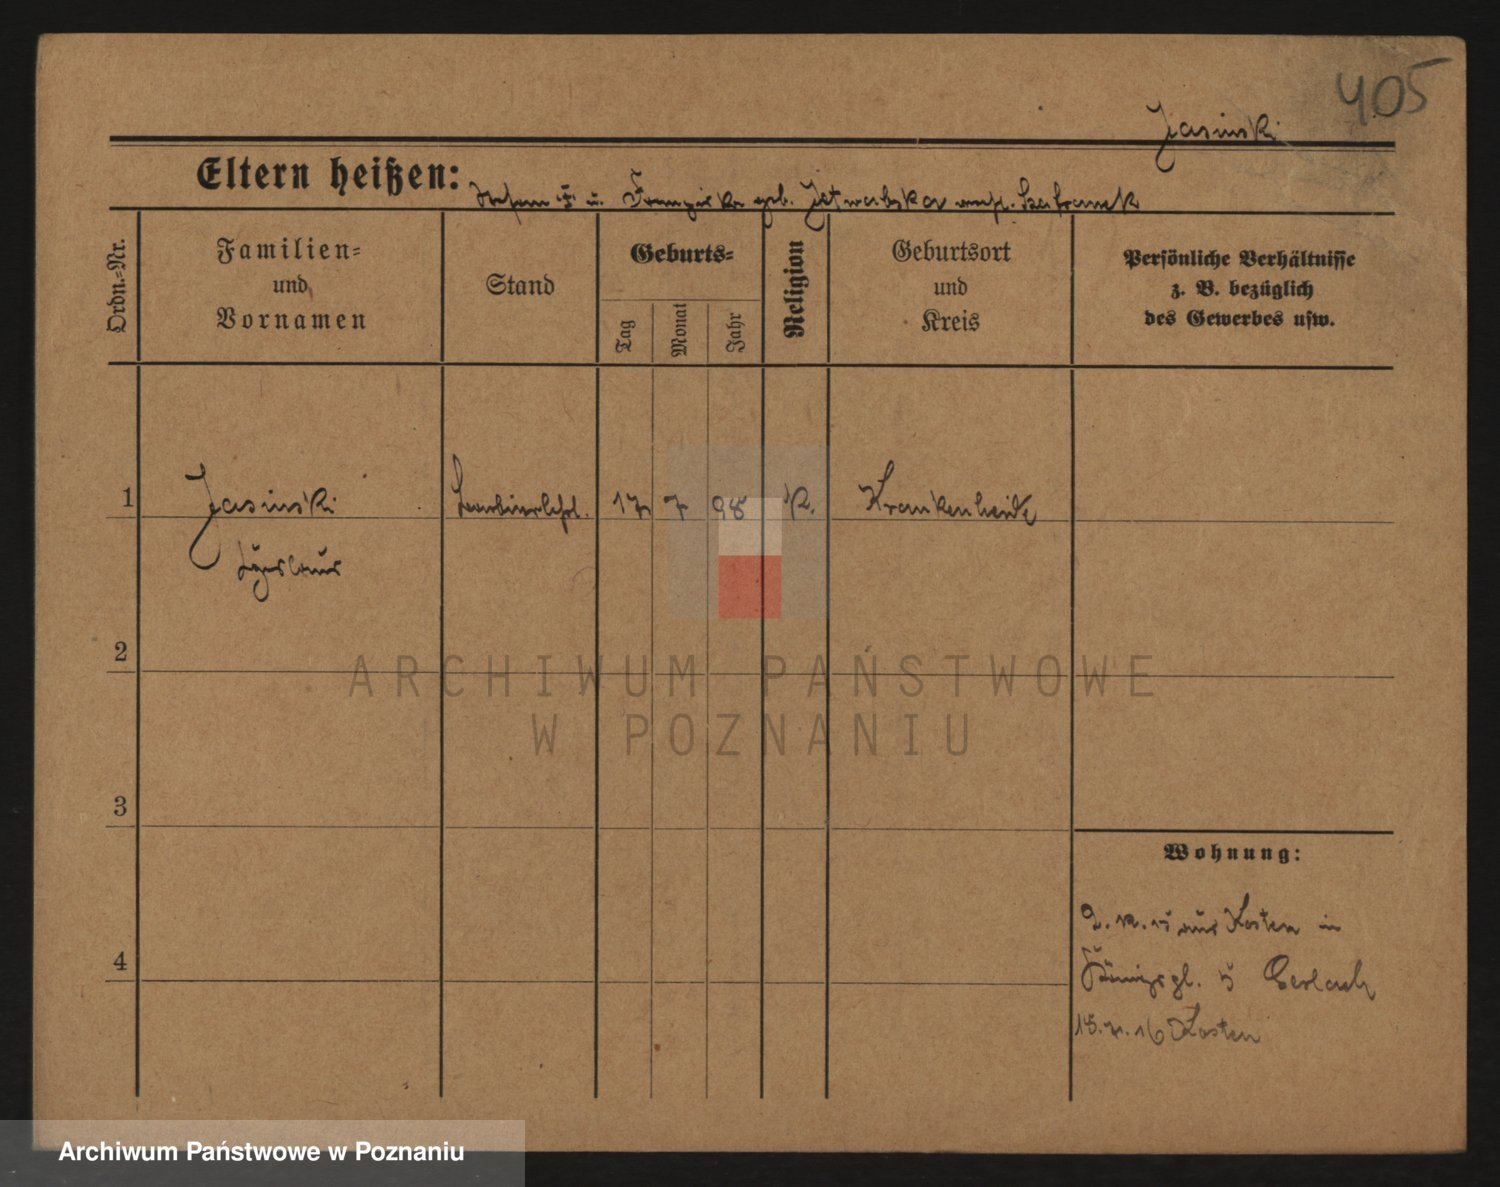 405
Jasinski
Eltern heißen: Stefan † u. Franziska geb.
Ordn.-Nr.
Familien-
und
Vornamen
Stand
Geburts-
Tag
Monat
Jahr
Religion
Geburtsort
und
Kreis
Persönliche Verhältnisse
z. B. bezüglich
des Gewerbes usw.
1 Jasinski 17 7 98 K. Krankenheide
2
3
4
ARCHIWUM PAŃSTWOWE
W POZNANIU
Wohnung:
aus Kosten in
Königspl. 5 Gerlach
16 Kosten
Archiwum Państwowe w Poznaniu